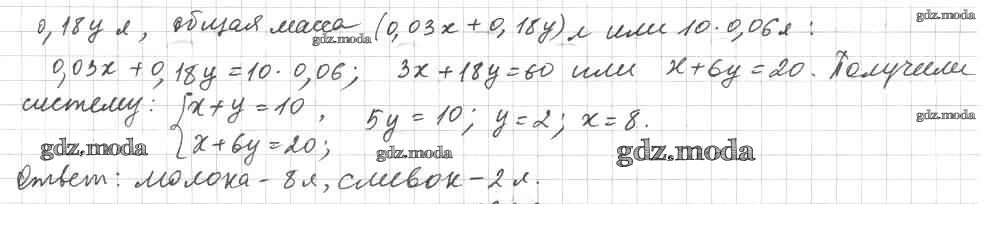 0,18y л, общая масса (0,03x + 0,18y) л или 10 · 0,06 л :
0,03x + 0,18y = 10 · 0,06; 3x + 18y = 60 или x + 6y = 20. Получили
систему: { x + y = 10 , 5y = 10; y = 2; x = 8.
x + 6y = 20;
Ответ: молока - 8 л, сливок - 2 л.
gdz.moda
gdz.moda
gdz.moda
gdz.moda
gdz.moda
gdz.moda